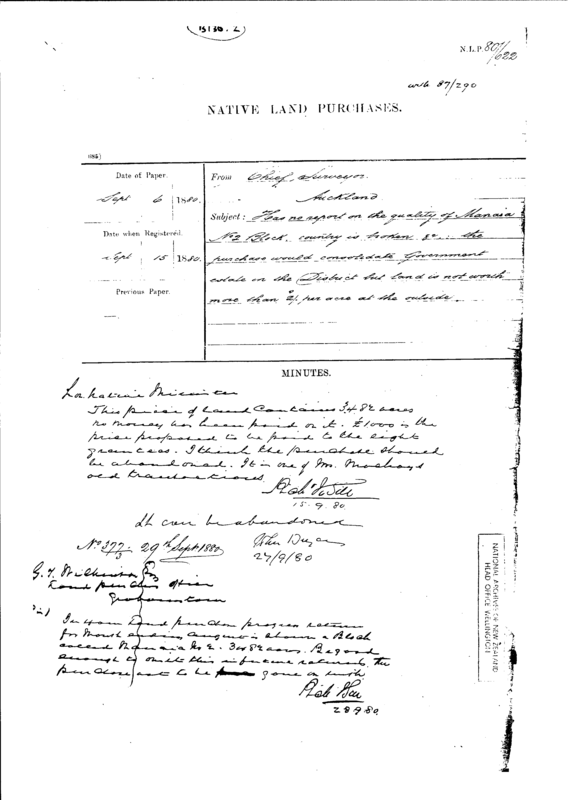 B136.2
N.L.P. 80/622
with 87/290
NATIVE LAND PURCHASES.
Date of Paper.
Sept 6 1880.
Date when Registered.
Sept 15 1880.
Previous Paper.
From Chief Surveyor
Auckland
Subject: Has no report on the quality of Manaia
No 2 Block. country is broken &c. the
purchase would consolidate Government
estate in the District but land is not worth
more than 2/ per acre at the outside.
MINUTES.
Native Minister
This piece of Land Contains 3482 acres
no money has been paid on it. £1000 is the
price proposed to be paid to the eight
grantees. I think the purchase should
be abandoned. It is one of Mr. Mackay's
old transactions.
15.9.80
It can be abandoned
No 377/3 29th Sept 1880
27/9/80
G. T. Wilkinson Esq
Land purchase officer
Grahamstown
In your Land purchase progress return
for Month ending August is shown a Block
called Manaia No 2. 3482 acres. Be good
enough to omit this in future returns the
purchase not to be gone on with
28.9.80
NATIONAL ARCHIVES OF NEW ZEALAND
HEAD OFFICE WELLINGTON